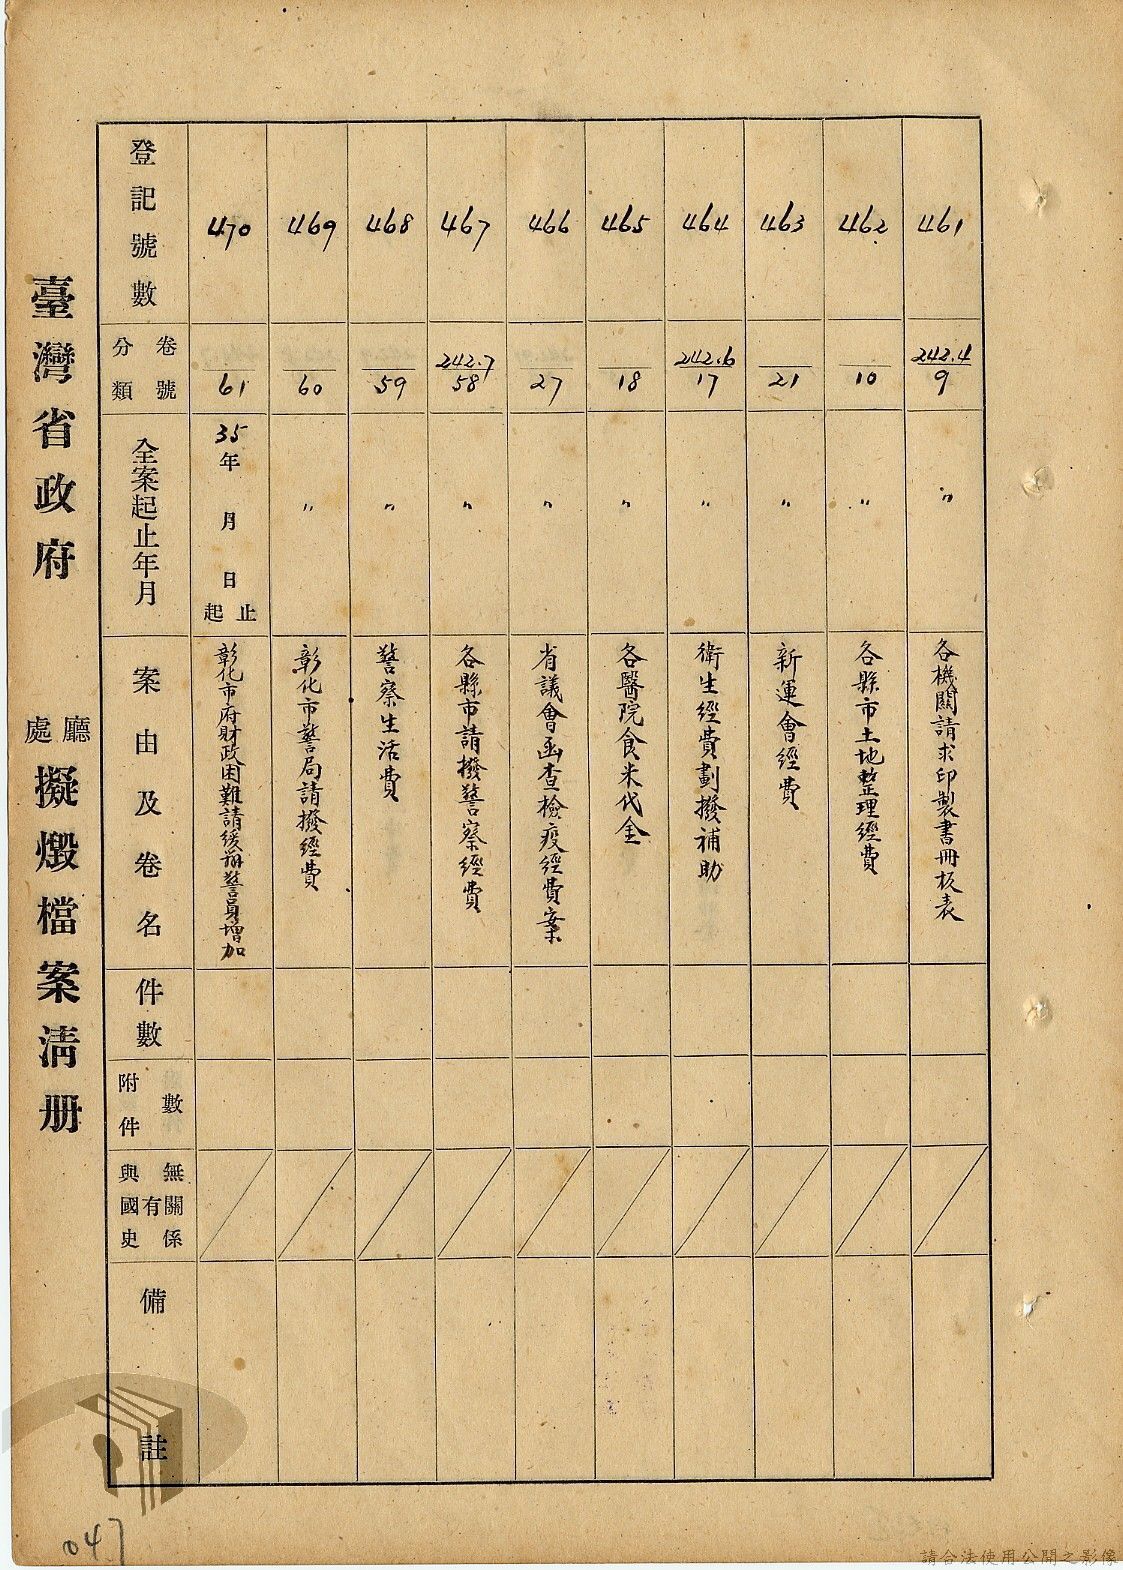 臺灣省政府 廳處 擬燬檔案清册
登記號數
卷號
分類
全案起止年月
案由及卷名
件數
附件數
與國史有無關係
備註
470
61
35年 月 日起止
彰化市府財政困難請緩辦警員增加
469
60
〃
彰化市警局請撥經費
468
59
〃
警察生活費
467
242.7
58
〃
各縣市請撥警察經費
466
27
〃
省議會函查檢疫經費案
465
18
〃
各醫院食米代金
464
242.6
17
〃
衛生經費劃撥補助
463
21
〃
新運會經費
462
10
〃
各縣市土地整理經費
461
242.4
9
〃
各機關請求印製書冊板表
047
請合法使用公開之影像